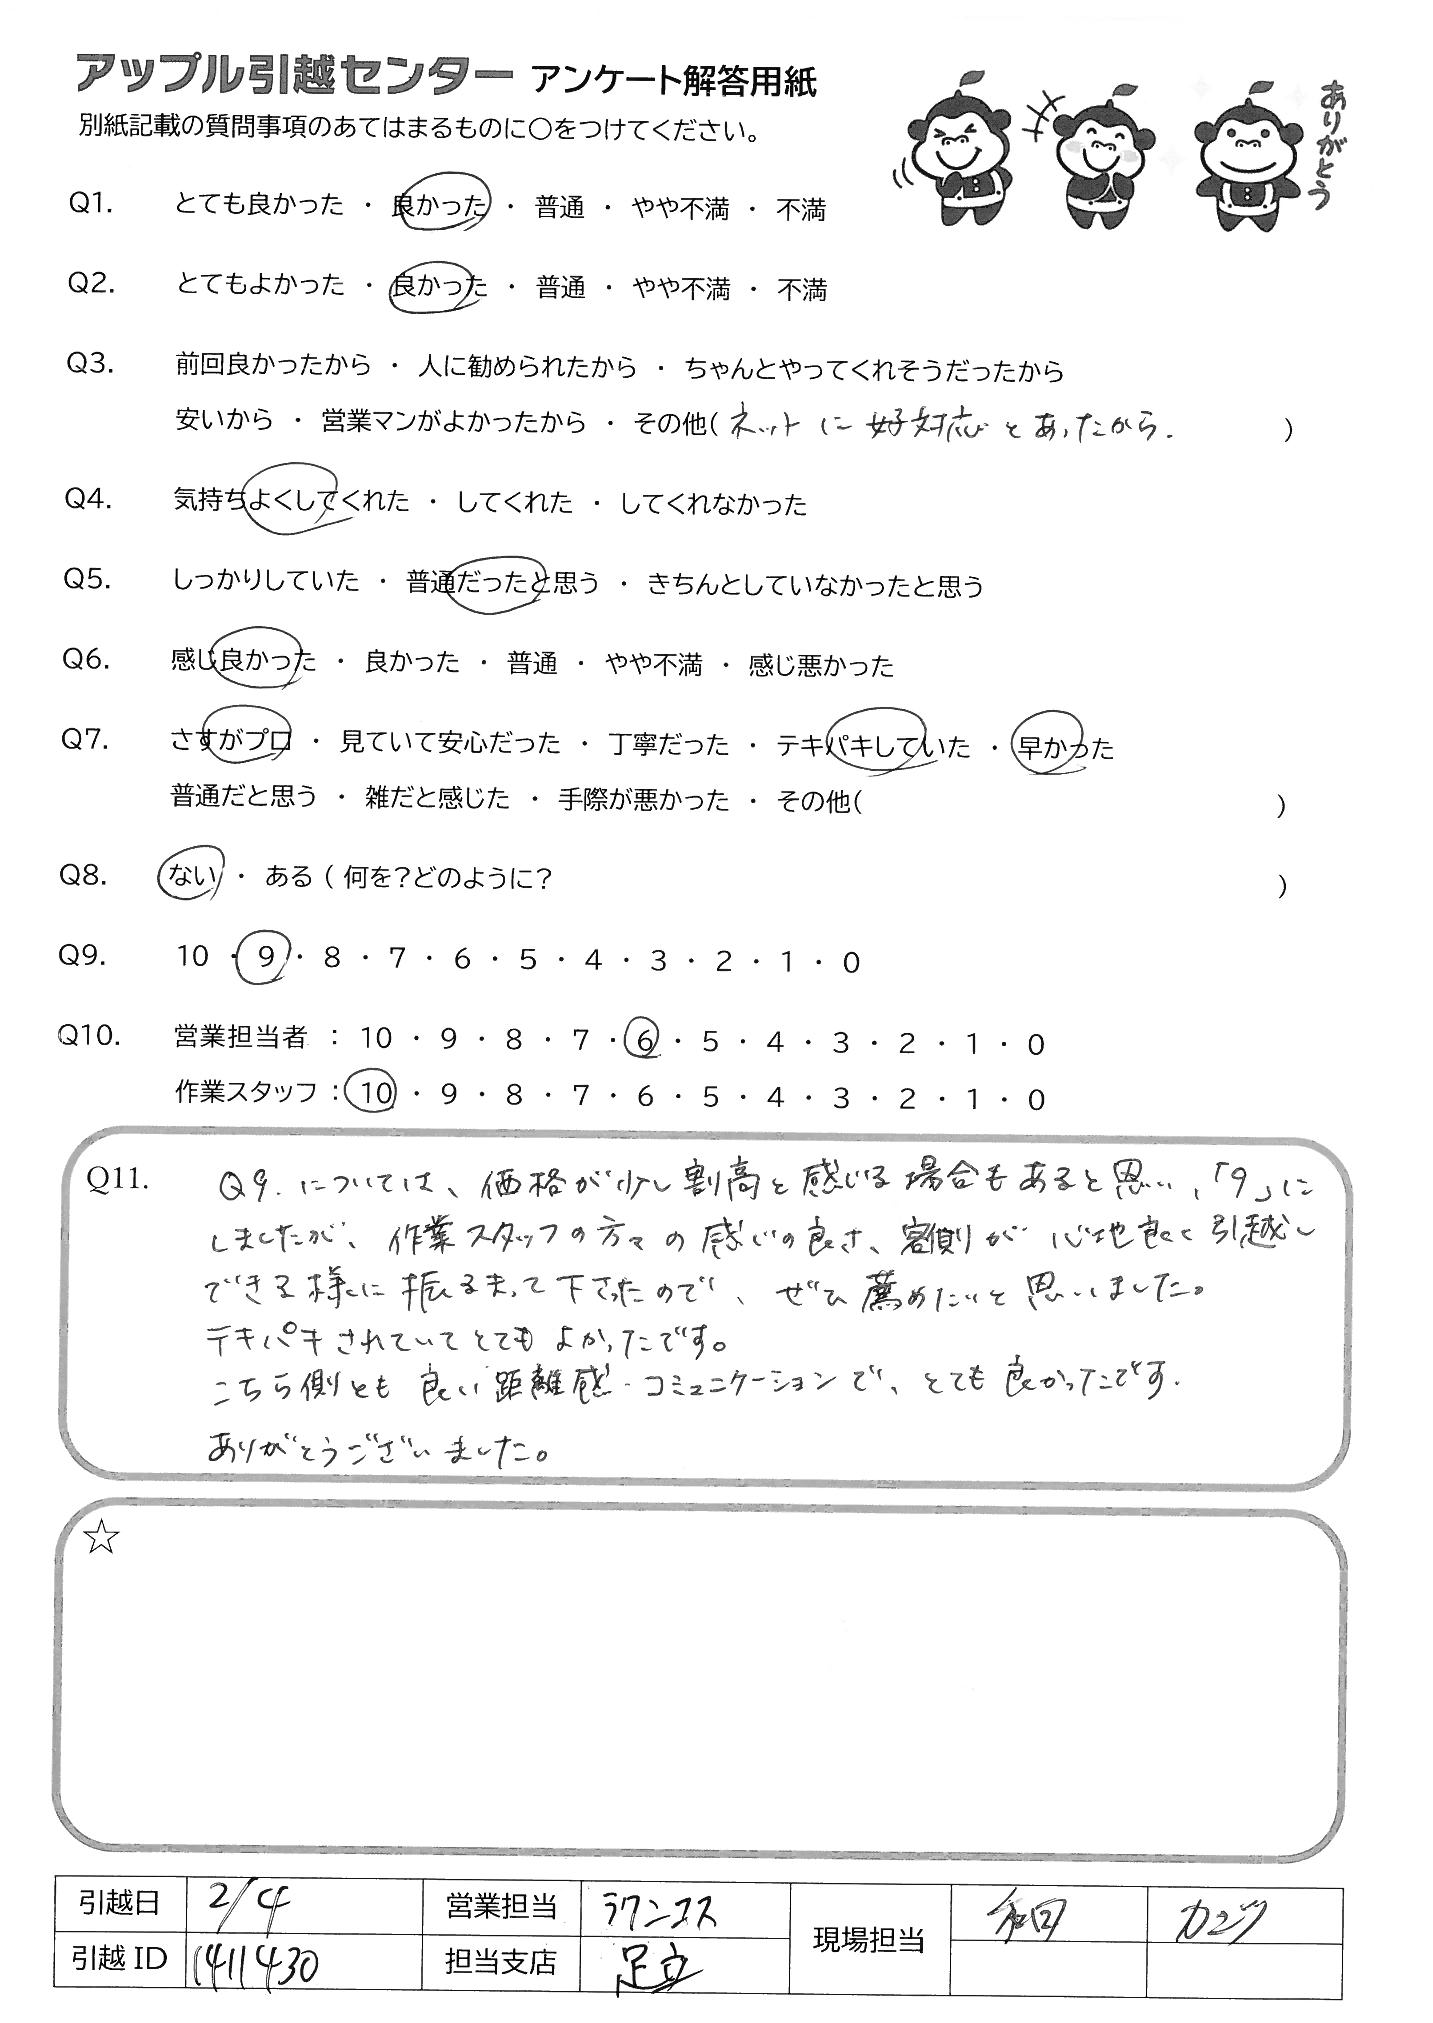 アップル引越センター アンケート解答用紙
別紙記載の質問事項のあてはまるものに〇をつけてください。
ありがとう
Q1. とても良かった ・ 良かった ・ 普通 ・ やや不満 ・ 不満
Q2. とてもよかった ・ 良かった ・ 普通 ・ やや不満 ・ 不満
Q3. 前回良かったから ・ 人に勧められたから ・ ちゃんとやってくれそうだったから
安いから ・ 営業マンがよかったから ・ その他( ネットに好対応とあったから. )
Q4. 気持ちよくしてくれた ・ してくれた ・ してくれなかった
Q5. しっかりしていた ・ 普通だったと思う ・ きちんとしていなかったと思う
Q6. 感じ良かった ・ 良かった ・ 普通 ・ やや不満 ・ 感じ悪かった
Q7. さすがプロ ・ 見ていて安心だった ・ 丁寧だった ・ テキパキしていた ・ 早かった
普通だと思う ・ 雑だと感じた ・ 手際が悪かった ・ その他( )
Q8. ない ・ ある ( 何を?どのように? )
Q9. 10 ・ 9 ・ 8 ・ 7 ・ 6 ・ 5 ・ 4 ・ 3 ・ 2 ・ 1 ・ 0
Q10. 営業担当者 : 10 ・ 9 ・ 8 ・ 7 ・ 6 ・ 5 ・ 4 ・ 3 ・ 2 ・ 1 ・ 0
作業スタッフ : 10 ・ 9 ・ 8 ・ 7 ・ 6 ・ 5 ・ 4 ・ 3 ・ 2 ・ 1 ・ 0
Q11. Q9.については、価格が少し割高と感じる場合もあると思い、「9」に
しましたが、作業スタッフの方々の感じの良さ、客側が心地良く引越し
できる様に振るまって下さったので、ぜひ薦めたいと思いました。
テキパキされていてとてもよかったです。
こちら側とも良い距離感・コミュニケーションで、とても良かったです.
ありがとうございました。
☆
引越日 2/4 営業担当 ラワンコス 現場担当
引越 ID 1411430 担当支店 足立